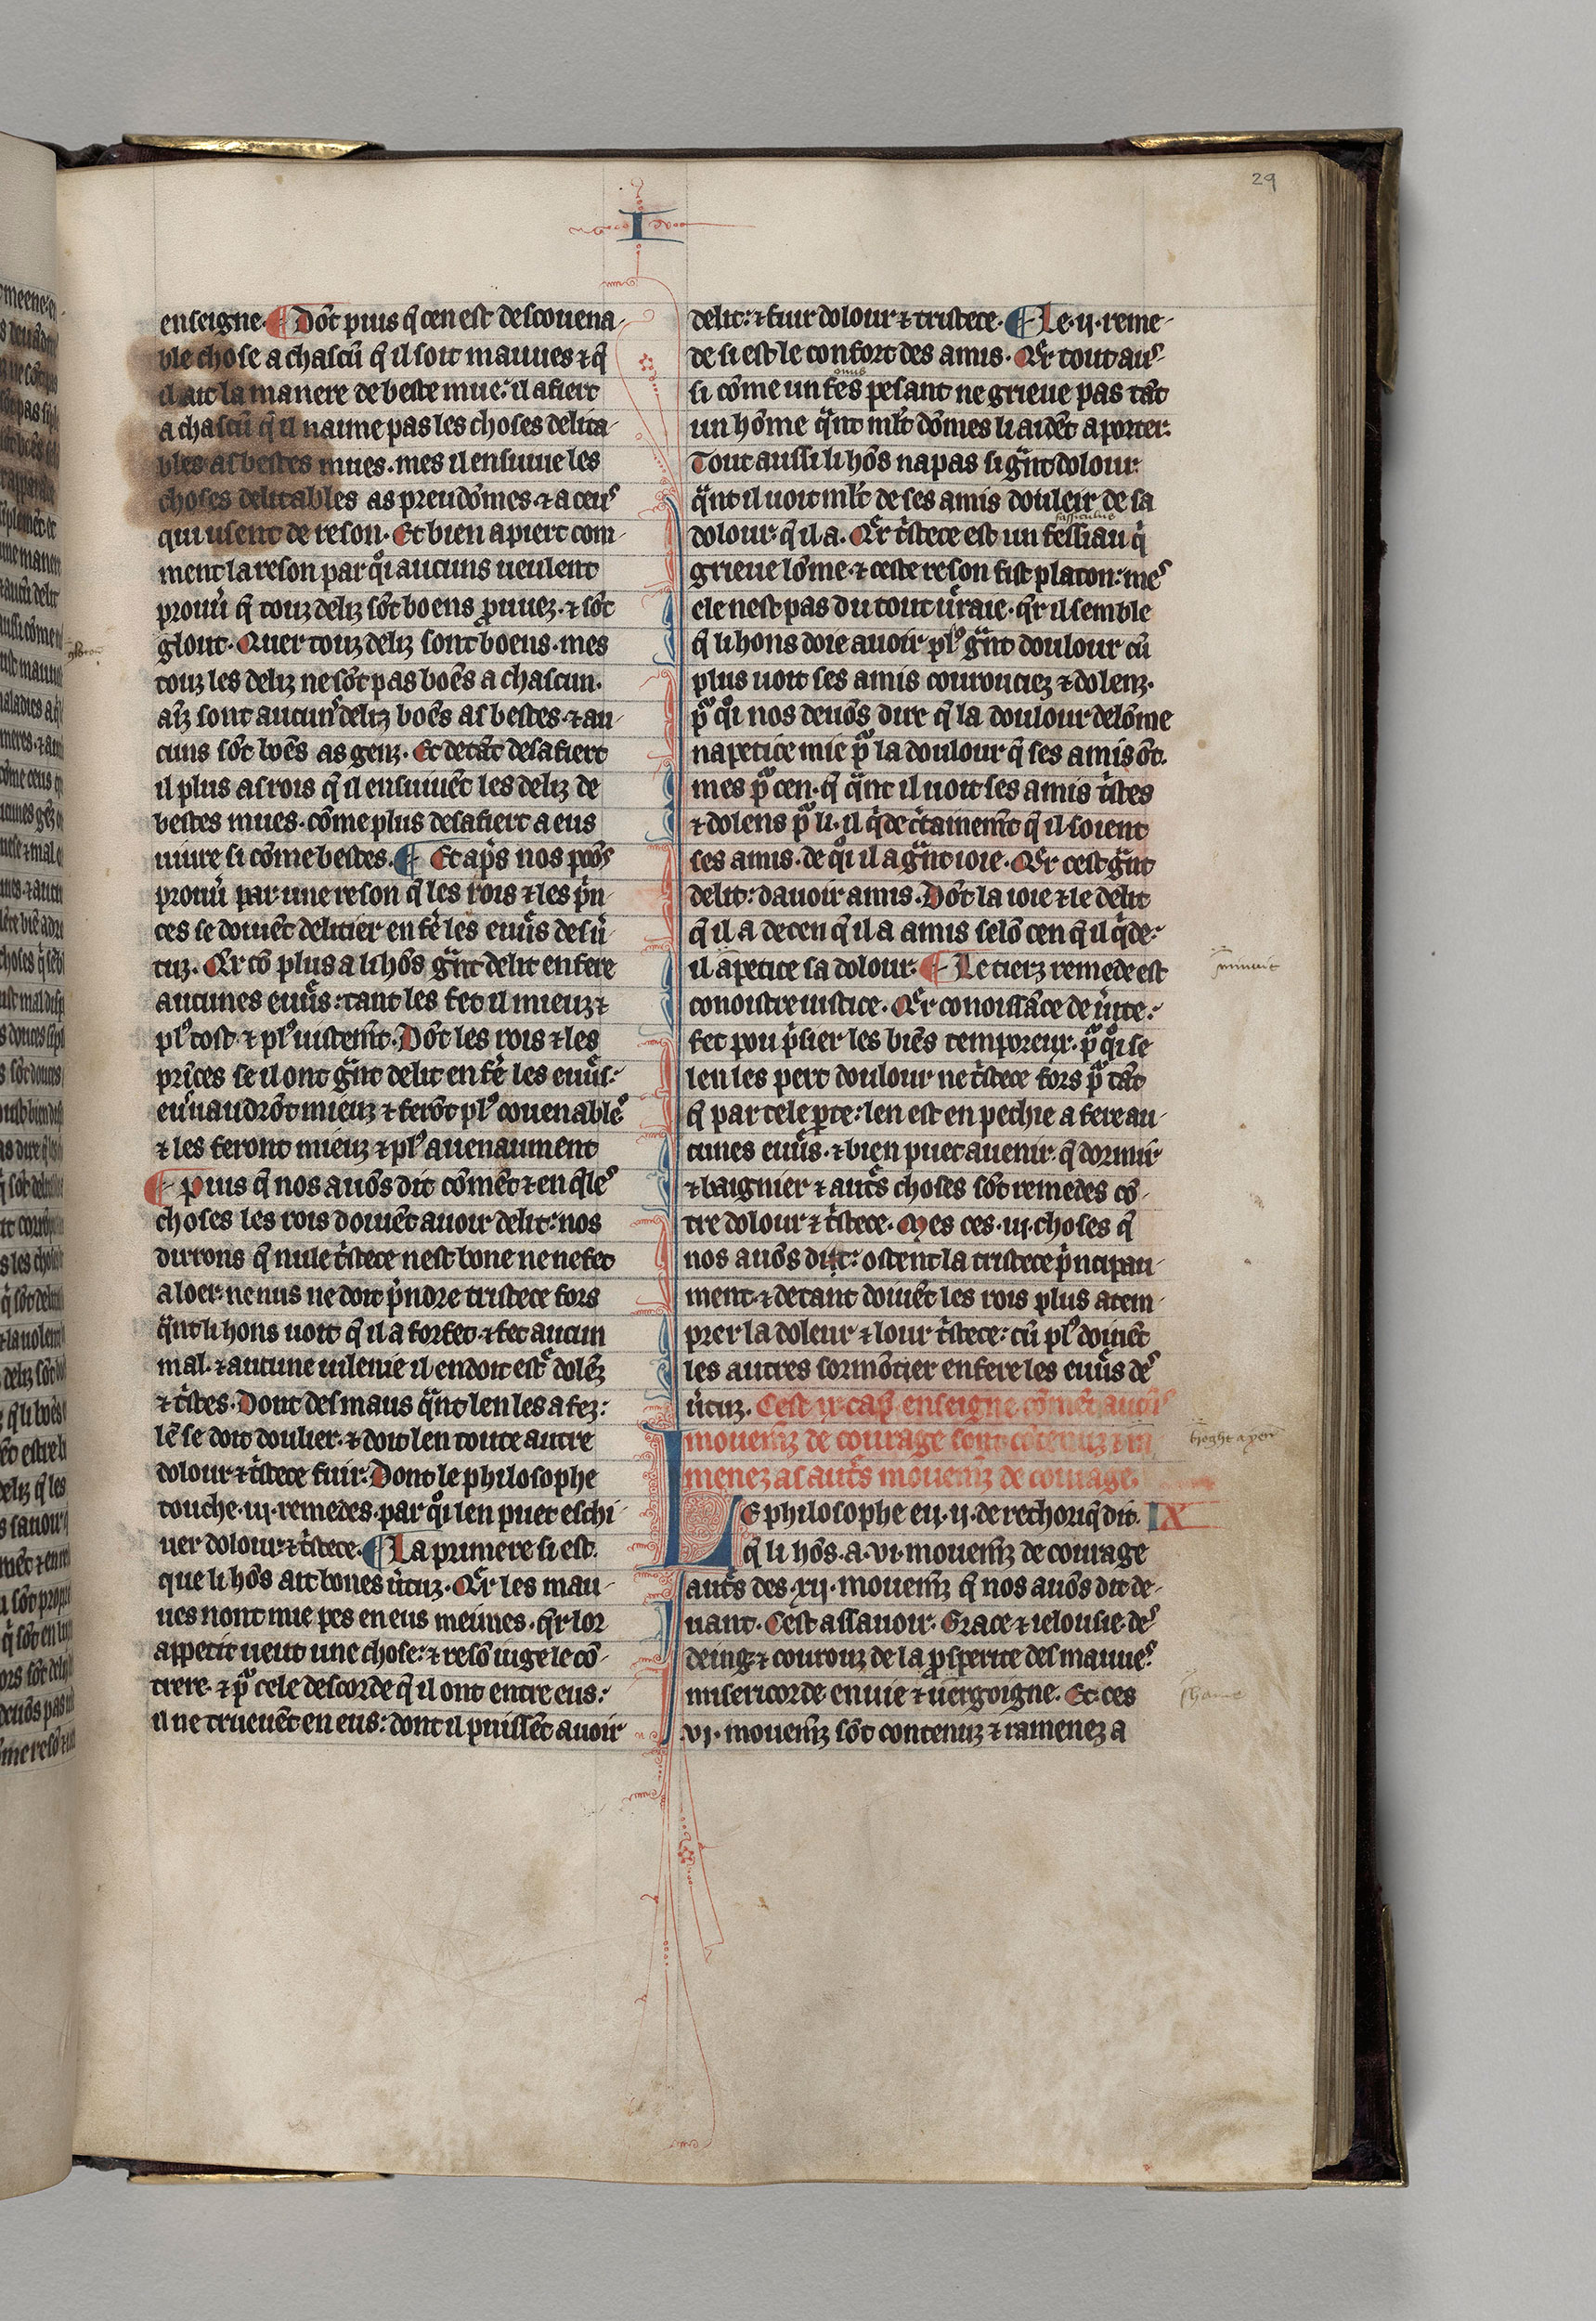 29
I
enseigne. ¶ Dōt puis q̄ cen est descouena-
ble chose a chascū q̄ il soit mauues ⁊ q̄
il ait la manere de beste mue: il afiert
a chascū q̄ il naime pas les choses delita-
bles as bestes mues. mes il ensuiue les
choses delitables as preudōmes ⁊ a ceus
qui usent de reson. Et bien apiert com-
ment la reson par qͦi aucuns ueulent
prouu̾ q̄ touz deliz sōt boens ꝓuuez. ⁊ sōt
glout. Quer touz deliz sont boens. mes
touz les deliz ne sōt pas boēs a chascun.
aīz sont aucun̾ deliz boēs as bestes. ⁊ au-
cuns sōt boēs as genz. Et de tāt desafiert
il plus as rois q̄ il ensuiuēt les deliz de
bestes mues. cōme plus desafiert a eus
uiure si cōme bestes. ¶ Et ap̾s nos poōs
prouu̾ par une reson q̄ les rois ⁊ les p̾n-
ces se doiuēt delitier en fe̾ les euu̾s de u̾-
tuz. Q̾r cō plus a li hōs gͣnt delit en fere
aucunes euu̾s: tant les fet il mieuz ⁊
plꝰ tost ⁊ plꝰ uistem̄t. Dōt les rois ⁊ les
prīces se il ont gͣnt delit en fe̾ les euu̾s:
eu̾uaudrōt mieuz ⁊ ferōt plꝰ couenables
⁊ les feront mieuz ⁊ plꝰ auenaument
¶ Puis q̄ nos auōs dit cōmēt ⁊ en q̄les
choses les rois doiuēt auoir delit: nos
dirrons q̄ nule tͥstece nest bone ne ne fet
a loer. ne nus ne doit p̾ndre tristece fors
qͣnt li hons uoit q̄ il a forfet. ⁊ fet aucun
mal. ⁊ aucune uilenie il en doit estͤ dolēz
⁊ tͥstes. Dont des maus qͣnt len les a fez:
lē se doit doulier. ⁊ doit len toute autre
dolour ⁊ tͥstece fuir. Dont le philosophe
touche .iij. remedes. par qͦi len puet eschi-
uer dolour ⁊ tͥstece. ¶ La primere si est.
que li hōs ait bones u̾tuz. Q̾r les mau-
ues nont mie pes en eus meimes. q̾r lor
appetit ueut une chose: ⁊ resō iuge le cō-
trere. ⁊ pͣ cele descorde q̄ il ont entre eus:
il ne trueuēt en eus: dont il puissēt auoir
delit: ⁊ fuir dolour ⁊ tristece. ¶ Le .ij. reme-
de si est le confort des amis. Q̾r tout aus-
onus
si cōme un fes pesant ne grieue pas tāt
un hōme qͣnt ml̄t dōmes li aidēt a porter.
Tout aussi li hōs na pas si gͣnt dolour
qͣnt il uoit ml̄t de ses amis douleir de sa
fasciculus
dolour: q̄ il a. Q̾r tͥstece est un fessiau qͥ
grieue lōme. ⁊ ceste reson fist platon: mes
ele nest pas du tout u̾raie. q̾r il semble
q̄ li hons doie auoir plꝰ gͣnt doulour cū
plus uoit ses amis courouciez ⁊ dolenz.
pͣ qͦi nos deuōs dire q̄ la doulour de lōme
napetice mie pͣ la doulour q̄ ses amis ōt.
mes pͣ cen. q̄ qͣnt il uoit ses amis tͥstes
⁊ dolens pͣ li. il q̾de c̾tainem̄t q̄ il soient
ses amis. de qͦi il a gͣnt ioie. Q̾r cest gͣnt
delit: dauoir amis. Dōt la ioie ⁊ le delit
q̄ il a de cen q̄ il a amis selō cen q̄ il q̾de:
il apetice sa dolour. ¶ Le tierz remede est
conoistre iustice. Q̾r conoissāce de u̾ite:
fet pou p̾sier les biēs temporeux. pͣ qͦi se
len les pert doulour ne tͥstece fors pͣ tāt
q̄ par tele ꝑte: len est en pechie a fere au-
cunes euu̾s. ⁊ bien puet auenir. q̄ dormir
⁊ baignier ⁊ aut̾s choses sōt remedes cō-
tre dolour ⁊ tͥstece. Mes ces .iij. choses q̄
nos auōs dit: ostent la tristece p̾ncipau-
ment. ⁊ de tant doiuēt les rois plus atem-
prer la doleur ⁊ lour tͥstece: cū plꝰ doiuēt
les autres sormōtier en fere les euu̾s des
u̾tuz. Cest .ix. cap. enseigne cōmēt aut̾s
mouem̄z de courage sont cōtenuz
menez as aut̾s mouem̄z de courage.
LE philosophe eu .ij. de rethoriq̄ dit. IX
q̄ li hōs. a .vi. mouem̄z de courage
aut̾s des .xij. mouem̄z q̄ nos auōs dit de-
uant. Cest assauoir. Grace ⁊ ielousie. des-
deing. ⁊ courouz de la ꝓsperite des mauues.
misericorde enuie ⁊ uergoigne. Et ces
.vj. mouem̄z sōt contenuz ⁊ ramenez a
shame